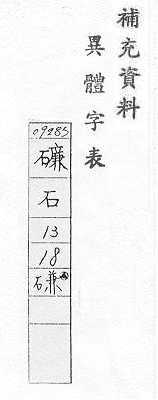 補充資料
異體字表
09285
石
13
18
磏